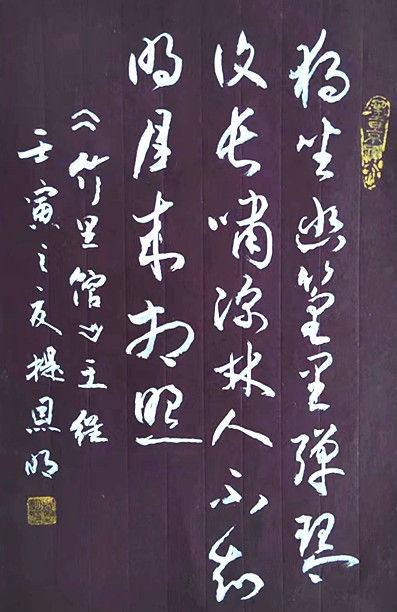 独坐幽篁里弹琴
复长嘯深林人不知
明月来相照
《竹里馆》王维
壬寅之夏恩明